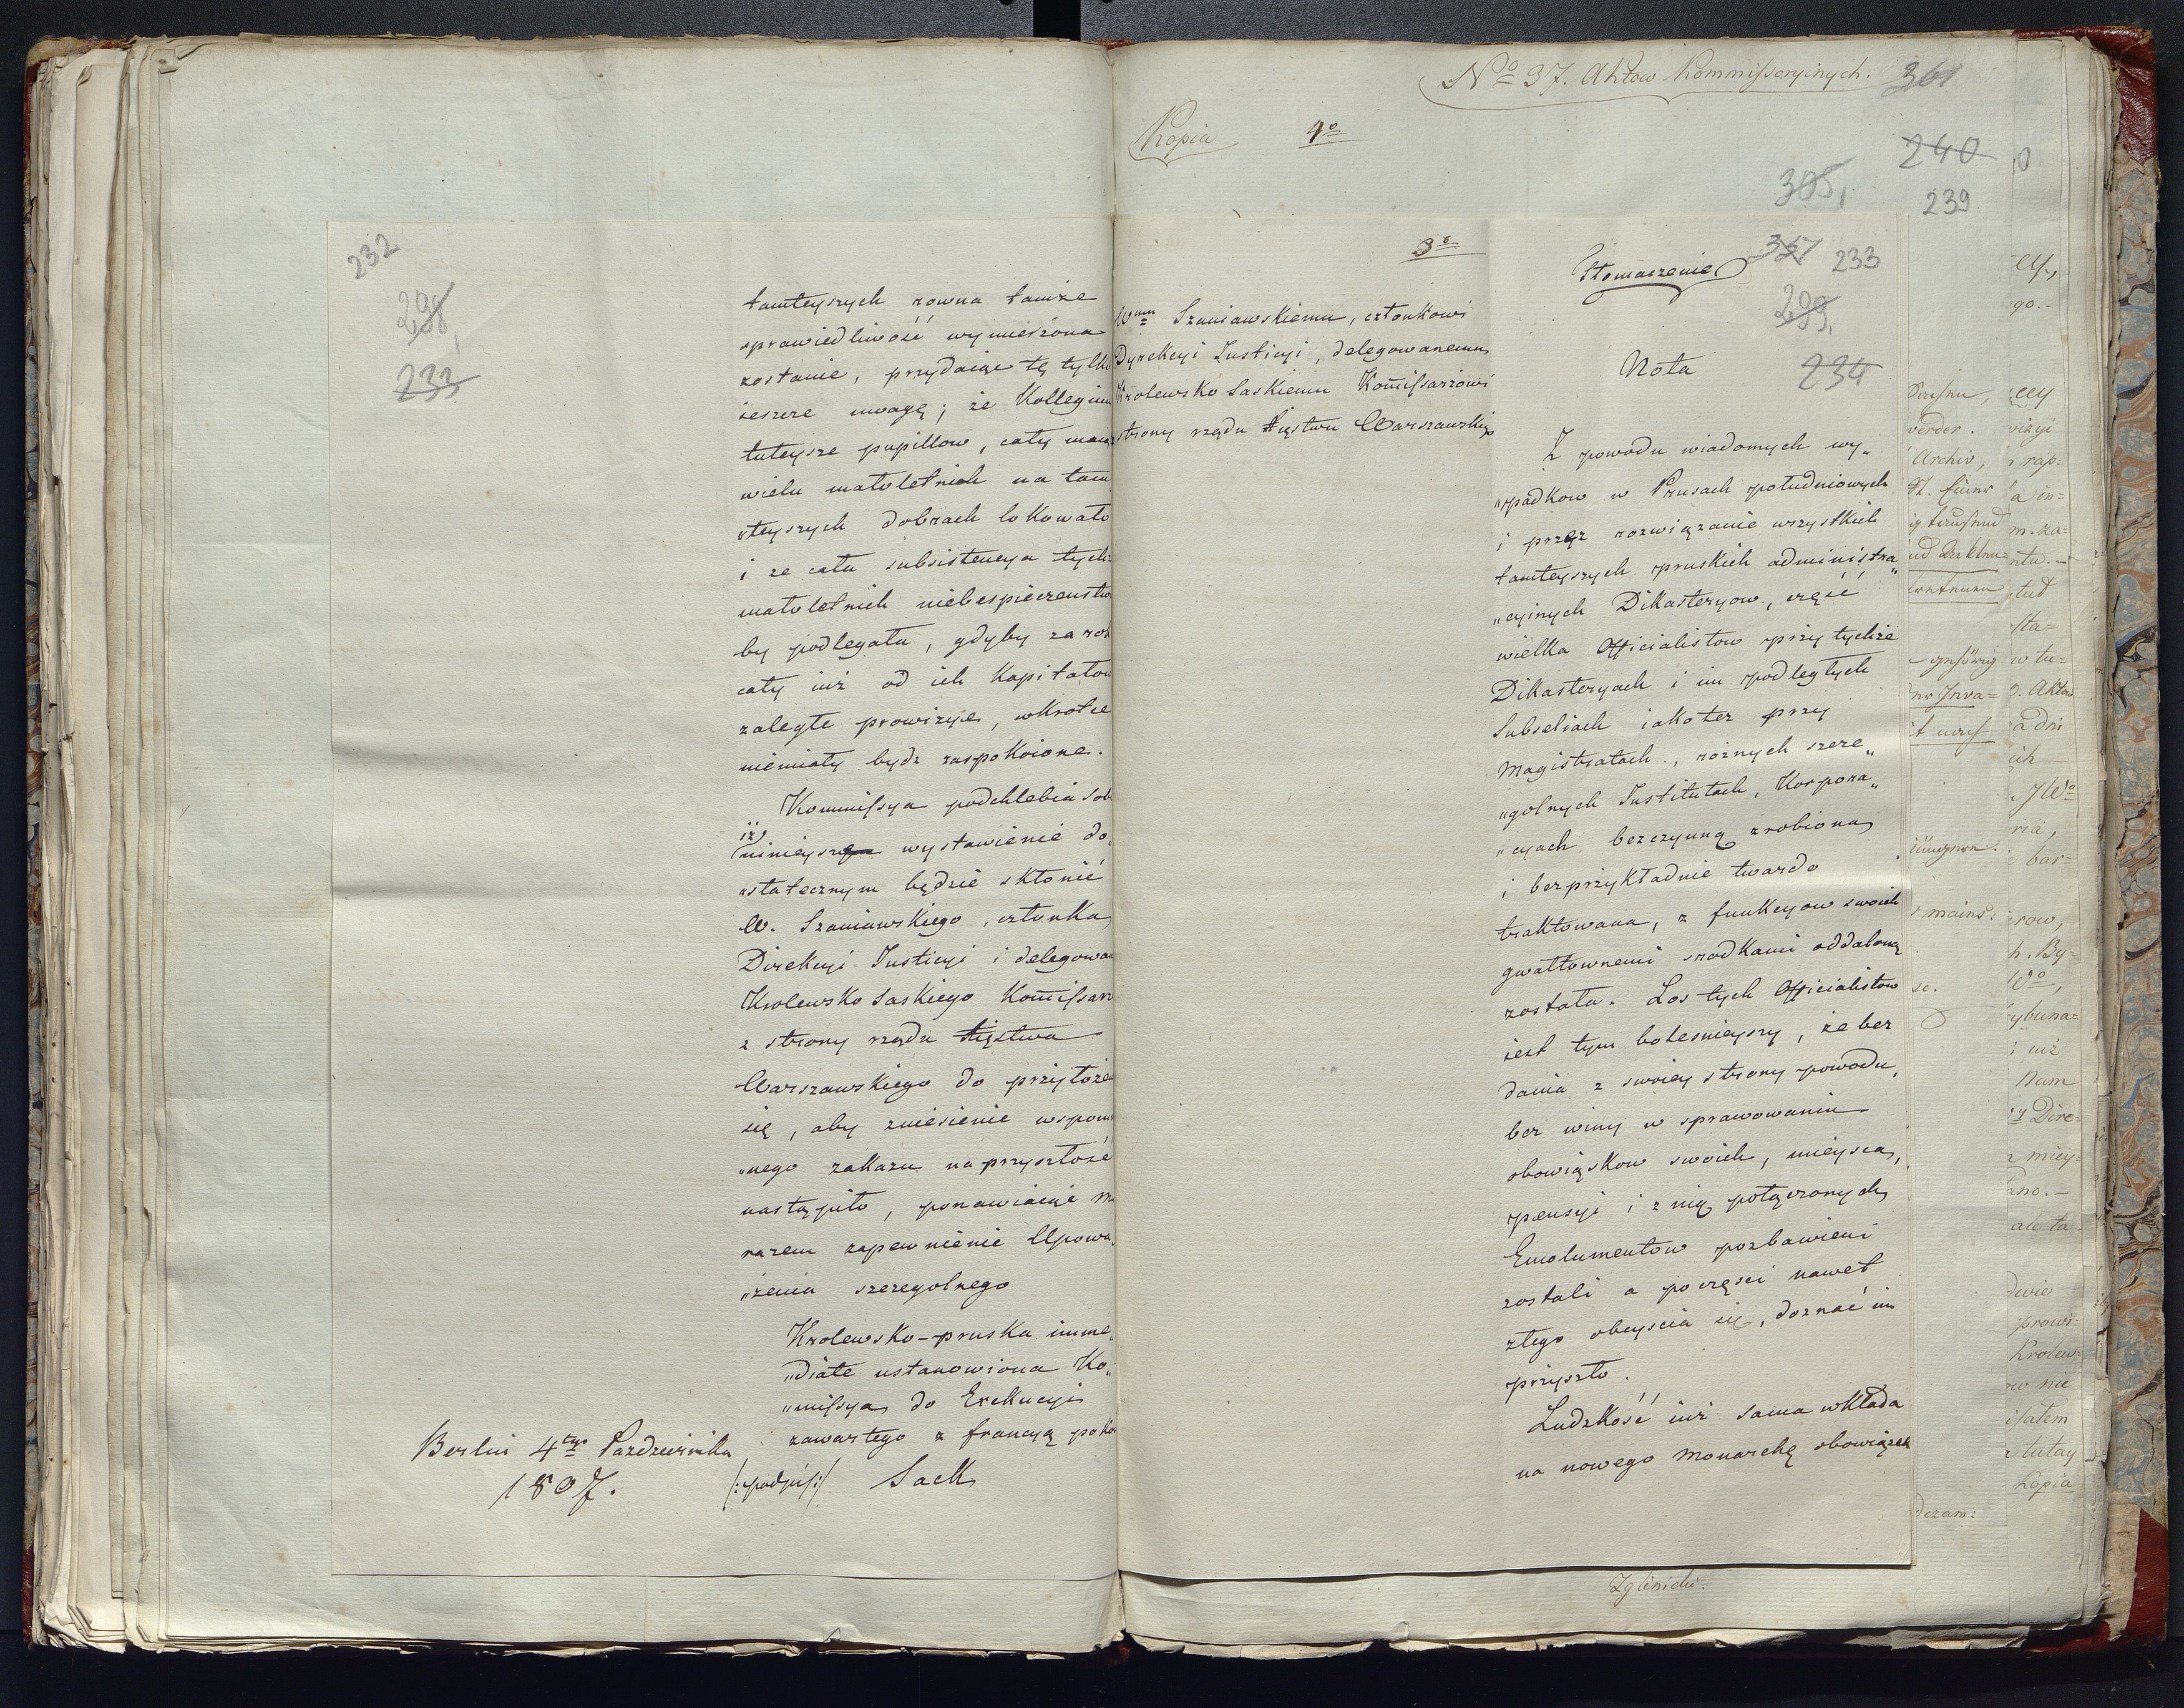 232
298,
233
tamteyszych rowna tamże
sprawiedliwość wymierzona
zostanie, przydaiąc tę tylko
ieszcze uwagę; że Kollegium
tuteysze pupillow, cały maią
wielu małoletnich na tam
„teyszych dobrach lokowało
i ze cała subsistencya tych
małoletnich niebespieczenstw
by podlegała, gdyby za rok
cały iuż od ich Kapitałow
zaległe prowizye, wkrotce
niemiały bydz zaspokoione.
Kommissya podchlebia sob
iż
ninieysze wystawienie do„
„statecznym będzie skłonić
W. Szaniawskiego, członka
Direkcyi Justicyi i delegowan
Krolewsko Saskiego Kom̄issarz
z strony rządu Xięstwa
Warszawskiego do przyłoże
się, aby zniesienie wspom
„nego zakazu na przyszłość
nastąpiło, ponawiaiąc
razem zapewnienie Upowa„
„żenia szczegolnego
Krolewsko-pruska imme„
„diate ustanowiona Ko„
„missya do Exekucyi
zawartego z francyą poko
Berlin 4tego Pazdziernika
1807.
/:podpis:/ Sack
No 37. Aktow Kommissyinych. 361
Kopia 4o
240
305,
239
3o
Tłomaczenie
357 233
299,
Wmu Szaniawskiemu, członkowi
Dyrekcyi Justicyi, delegowanemu
Krolewsko Saskiemu Kom̄issarzowi
strony rządu Xięstwu Warszawskiego
Nota
234
Z powodu wiadomych wy„
„padkow w Prusach południowych
i przez rozwiązanie wszystkich
tamteyszych pruskich administra„
„cyinych Dikasteryow, część
wielka Officialistow przy tychże
Dikasteryach i im podległych
Subseliach iakoteż przy
Magistratach, rożnych szcze„
„golnych Institutach, Korpora„
„cyach bezczynną zrobiona
i bezprzykładnie twardo
traktowana, z funkcyow swoich
gwałtownemi srodkami oddaloną
została. Los tych Officialistow
iest tym bolesnieyszy, że bez
dania z swoiey strony powodu,
bez winy w sprawowaniu
obowiązkow swoich, mieysca,
pensyi i z nią połączonych
Emolumentow pozbawieni
zostali a poczęsci nawet
złego obeyscia się, doznać im
przyszło.
Ludzkość iuż sama wkłada
na nowego Monarchę obowiązek
Archiv,
Krolew=
tutay
Kopia
Zglinicki.